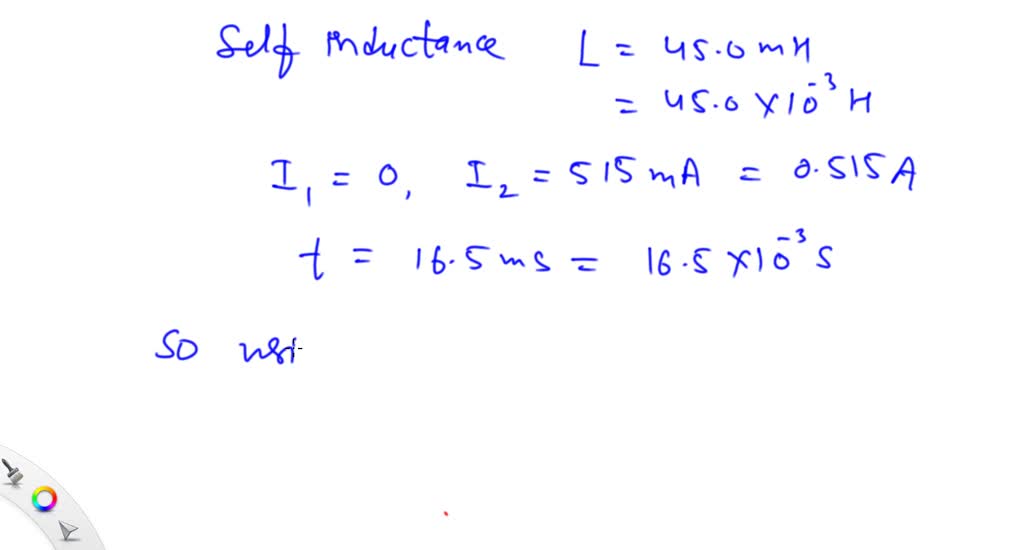 Self inductance L = 45.0 mH
= 45.0 × 10⁻³ H
I₁ = 0, I₂ = 515 mA = 0.515 A
t = 16.5 ms = 16.5 × 10⁻³ S
So usi